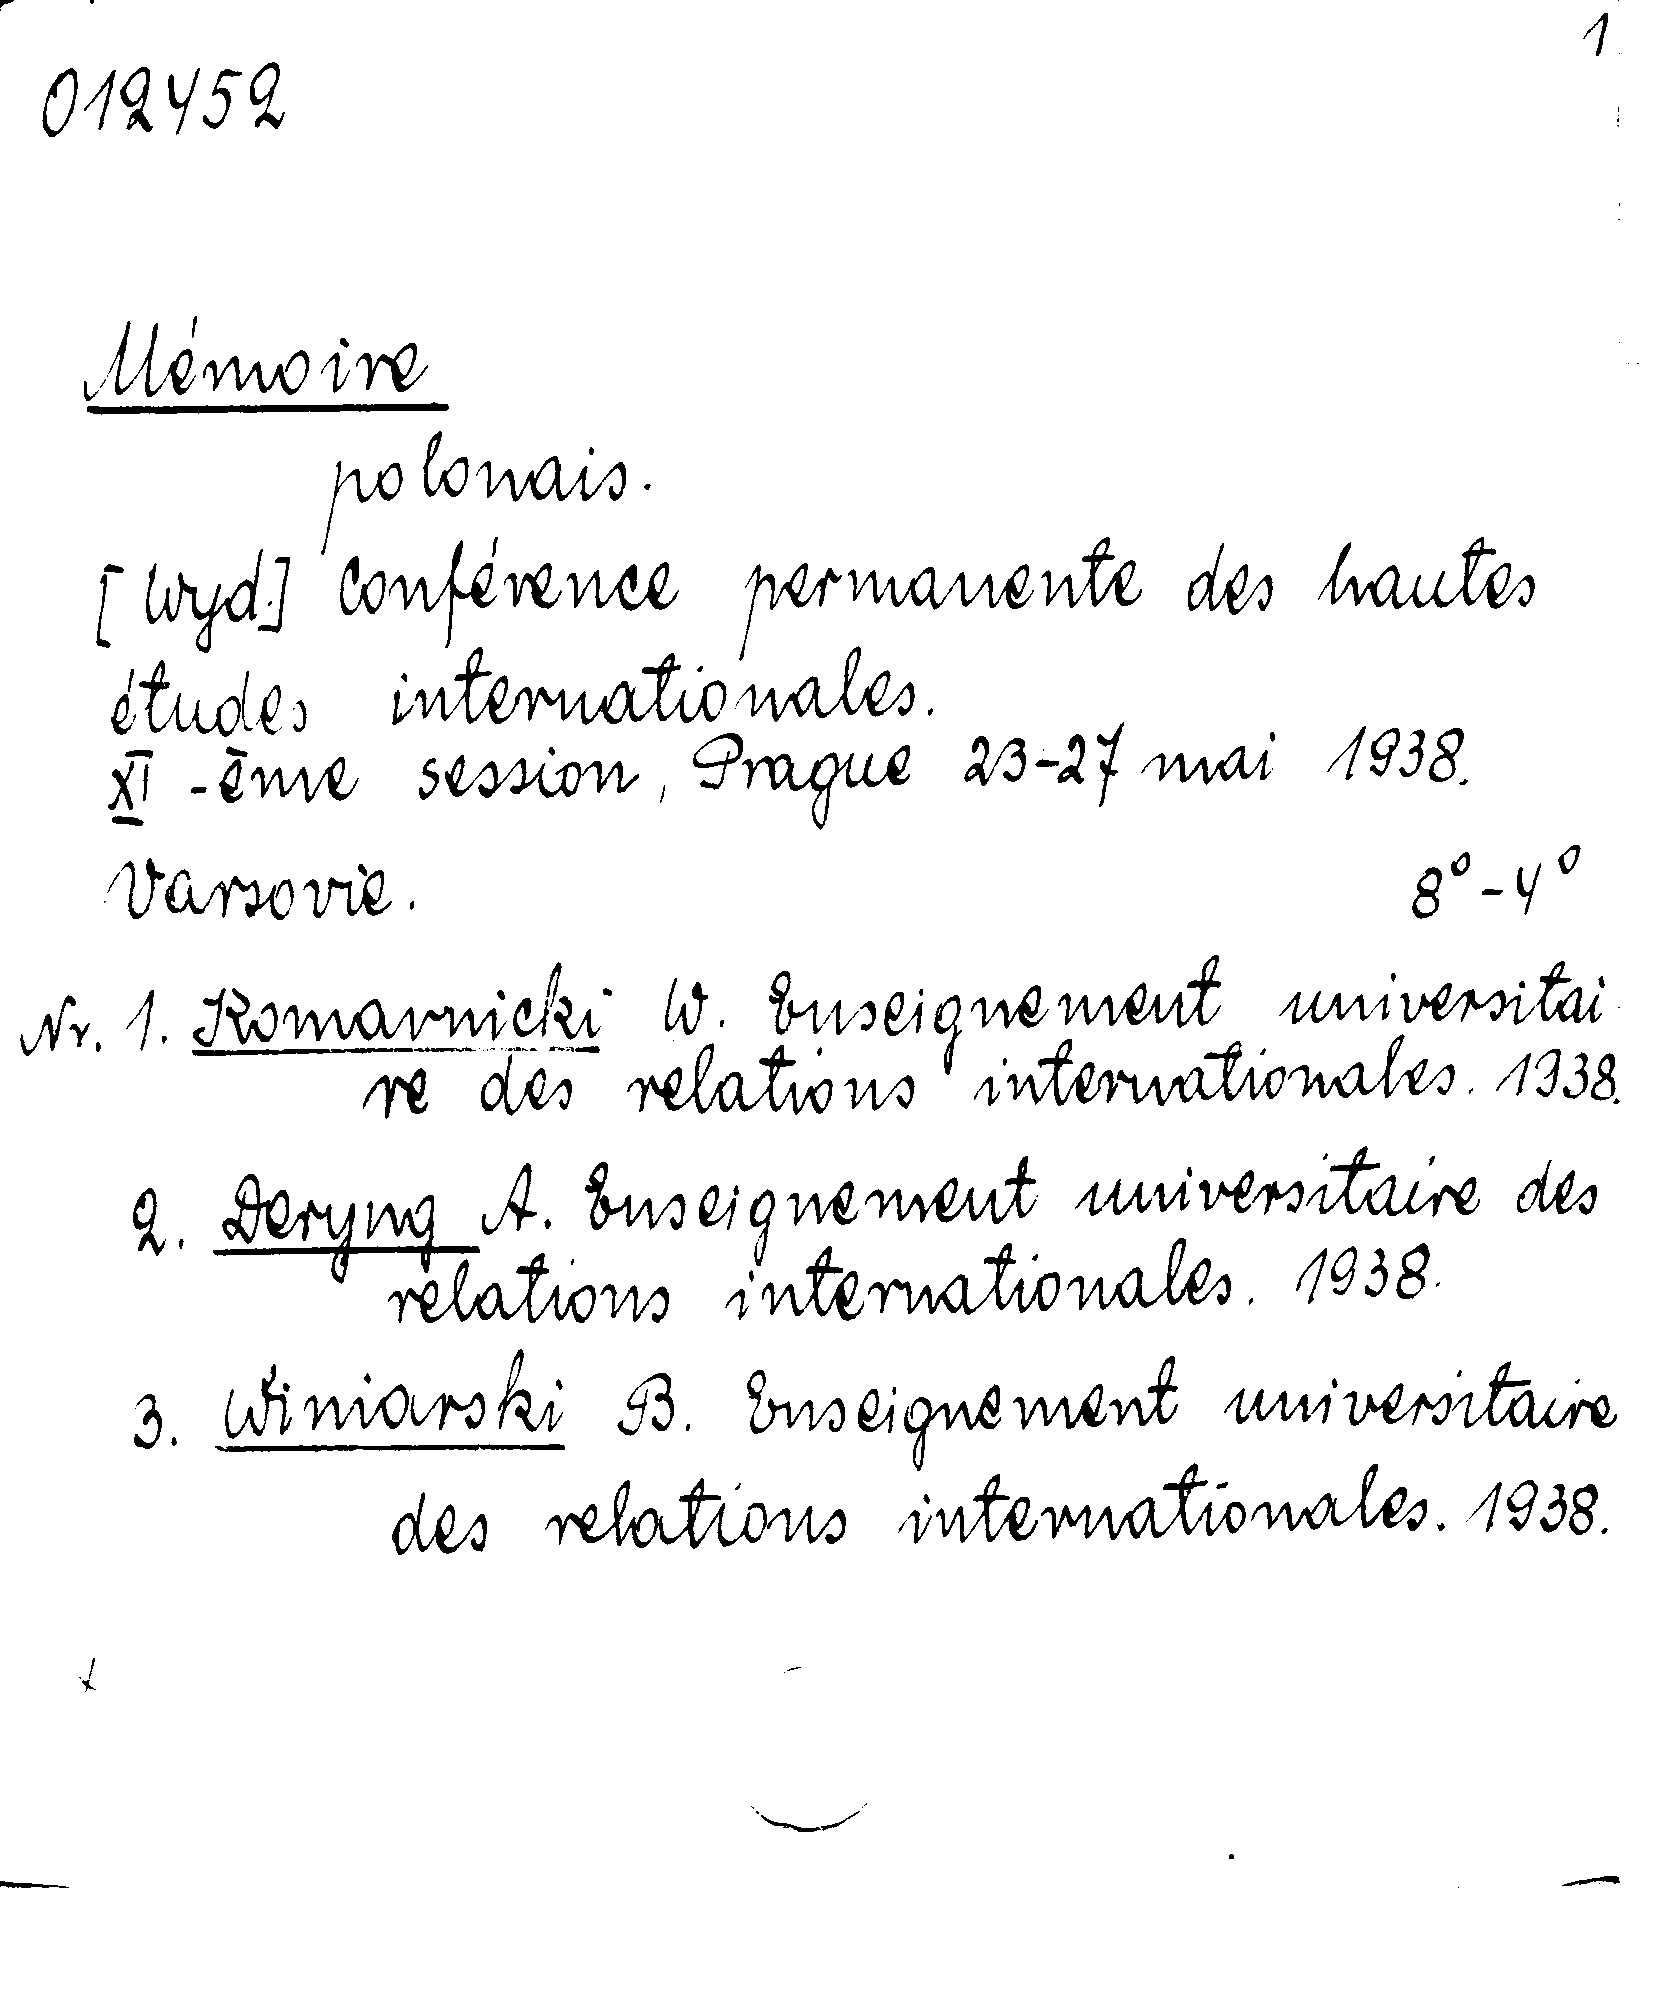 1
012452
Mémoire
polonais.
[Wyd.] Conférence permanente des hautes
études internationales.
XI-ème session, Prague 23-27 mai 1938.
Varsovie. 8° - 4°
Nr. 1. Komarnicki W. Enseignement universitai
re des relations internationales. 1938.
2. Deryng A. Enseignement universitaire des
relations internationales. 1938.
3. Winiarski B. Enseignement universitaire
des relations internationales. 1938.